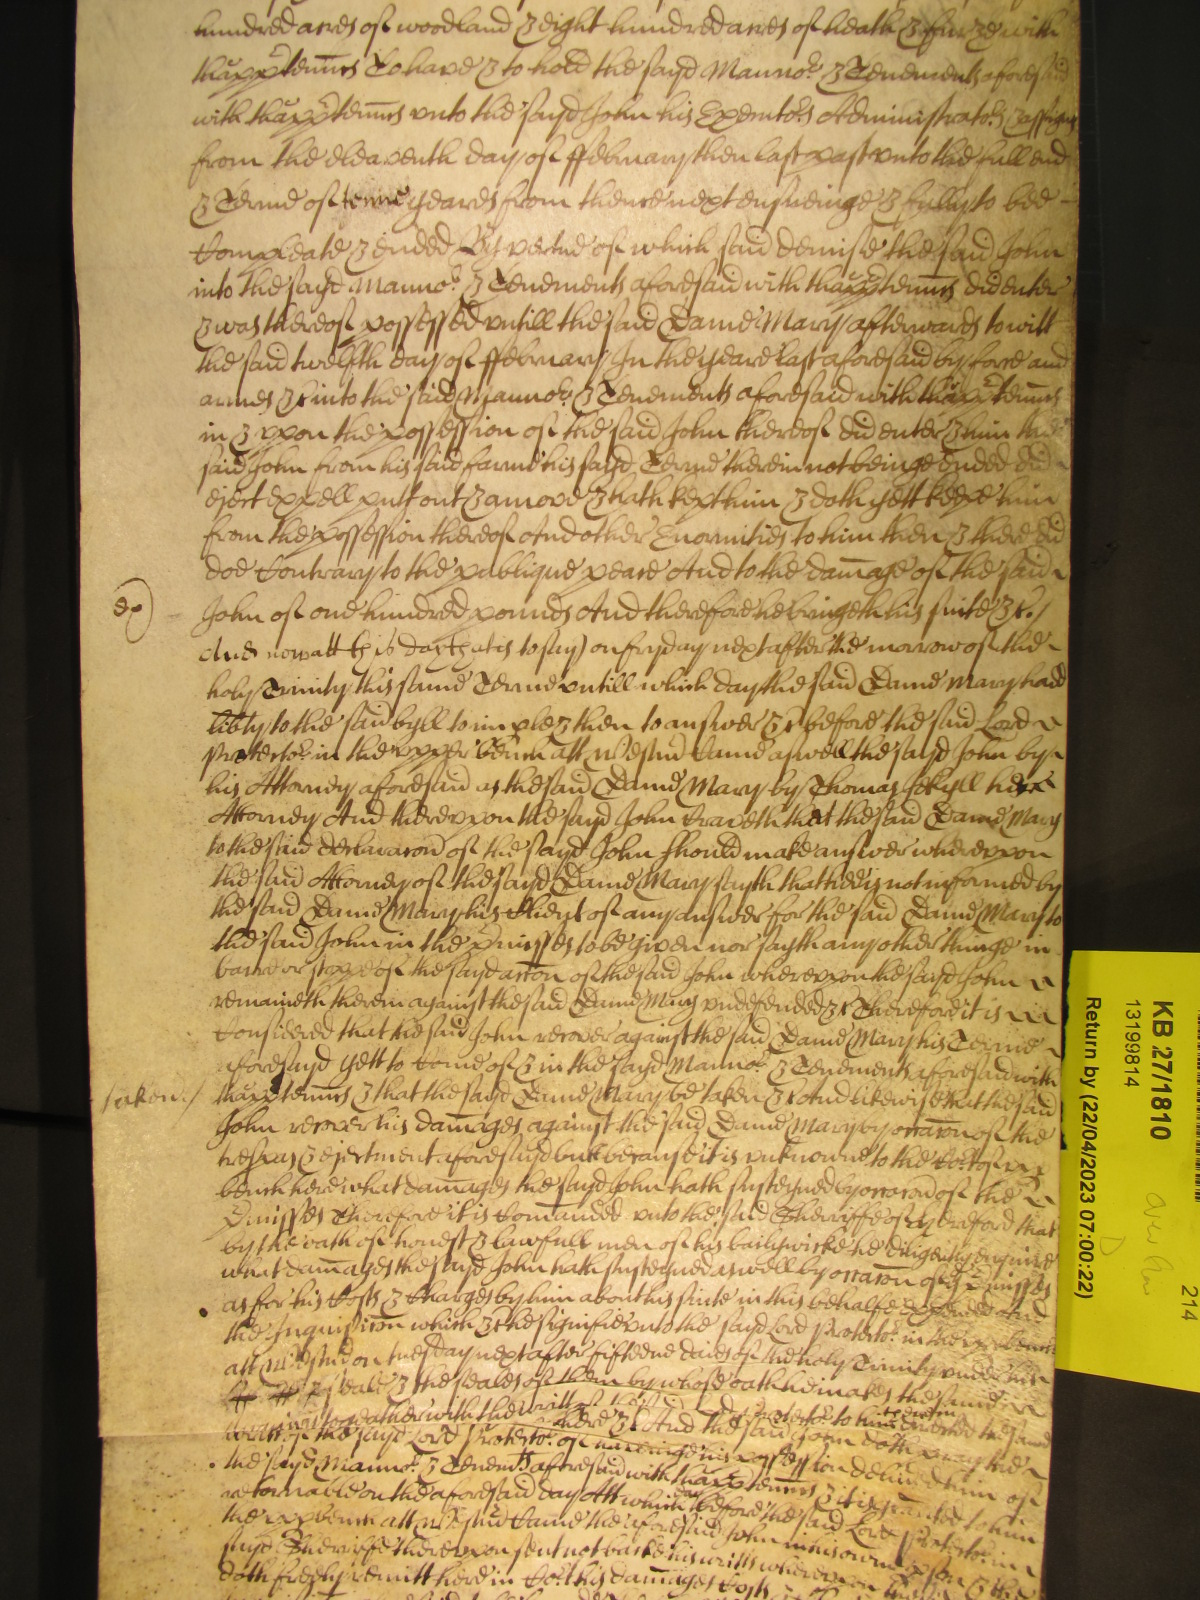 hundred acres of woodland & eight hundred acres of heath & furze with
thapptennces To have & to hold the sayd Mannor & Tenements aforesaid
with thapptennces unto the sayd John his Executors Administrators & assignes
from the eleaventh day of ffebruary then last past unto the full end
& Terme of tenne yeares from thence next ensueinge & fully to bee
Compleate & ended By vertue of which said demise the said John
into the sayd Mannor & Tenements aforesaid with thapptennces did enter
& was thereof possessed untill the said Dame Mary afterwards to witt
the said twelfth day of ffebruary In the yeare last aforesaid by force and
armes &c into the said Mannor & Tenements aforesaid with thapptennces
in & upon the possession of the said John thereof did enter & him the
said John from his said farme his sayd Terme therein not beinge ended did
eject expell putt out & amove & hath kept him & doth yett keepe him
from the possession thereof And other Enormities to him then & there did
doe Contrary to the publique peace And to the damage of the said
John of one hundred pounds And therefore he bringeth his suite &c /
And now att this day that is to say on fryday next after the morrow of the
holy Trinity this same Terme untill which day the said Dame Mary had
liberty to the said byll to imple & then to answer &c before the said Lord
Protector in the upper bench att Westmr Came aswell the sayd John by
his Attorney aforesaid as the said Dame Mary by Thomas Jekyll her
Attorney And thereupon the sayd John Craveth that the said Dame Mary
to the said declaracon of the sayd John should make answer whereupon
the said Attorney of the sayd Dame Mary sayth that hee is not informed by
the said Dame Mary his Client of any answer for the said Dame Mary to
the said John in the pmisses to be given nor sayth any other thinge in
barre or stopp of the sayd accon of the said John whereupon the sayd John
remaineth therein against the said Dame Mary undefended &c Therefore it is
Considered that the said John recover against the said Dame Mary his Terme
taken /
aforesayd yett to Come of & in the sayd Mannor & Tenements aforesaid with
thapptennces & that the sayd Dame Mary be taken &c And likewise that the said
John recover his damages against the said Dame Mary by occacon of the
trespas & ejectment aforesaid but because it is unknowne to the Cort of upp
bench here what damages the sayd John hath susteyned by occacon of the
pmisses Therefore it is Comanded unto the said Sherriffe of Hereford that
by the oath of honest & lawfull men of his bailywicke he diligently enquire
what damages the sayd John hath susteyned aswell by occacon of the pmisses
as for his Costs & Charges by him about his suite in this behalfe expended And
the Inquisicon which &c he signifie unto the sayd Lord Protector in the upp bench
att Westmr on tuesday next after fifteene daies of the holy Trinity under his
seale & the seales of them by whose oath he makes the same
togeather with the writt
here &c And the said John doth pray the
writt of the sayd Lord Protector of haveinge his possession delivered him of
the sayd Mannor & Tenemts aforesaid with thapptennces & it is graunted to him
retornable on the aforesaid day Att which day before the said Lord Protector in
the upp bench att Westmr Came the aforesaid John in his owne pson & the
sayd Sherriffe thereupon sent not backe his writts whereupon
doth freely remitt here in Cort his damages Costs
KB 27/1810
13199814
Return by (22/04/2023 07:00:22)
D
214